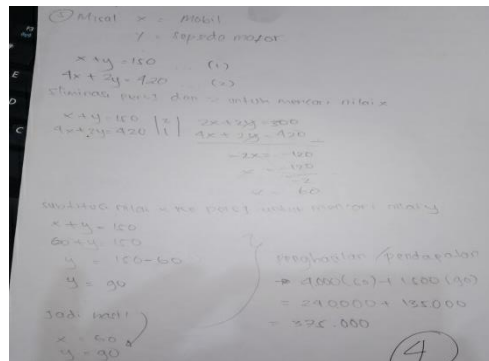 Misal x = Mobil
y = sepeda motor
x + y = 150 ... (1)
4x + 2y = 420 (2)
eliminasi pers 1 dan 2 untuk mencari nilai x
x + y = 150 |2| 2x + 2y = 300
4x + 2y = 420 |1| 4x + 2y = 420
-2x = -120
x = -120
-2
x = 60
x + y = 150
60 + y = 150
y = 150 - 60
y = 90
Jadi
x = 60
y = 90
penghasilan / pendapatan
= 4000 (60) + 1500 (90)
= 240000 + 135000
= 375.000
4